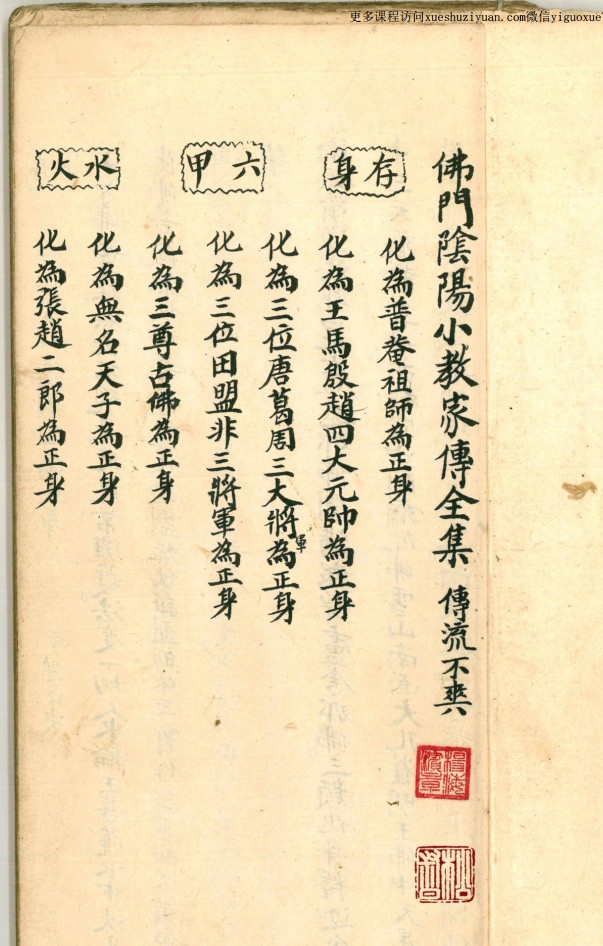 更多课程访问xueshuziyuan.com微信yiguoxue
佛門陰陽小教家傳全集 傳流不爽
存身
化為普菴祖師為正身
化為王馬殷趙四大元帥為正身
化為三位唐葛周三大將軍為正身
六甲
化為三位田盟非三將軍為正身
化為三尊古佛為正身
水火
化為無名天子為正身
化為張趙二郎為正身